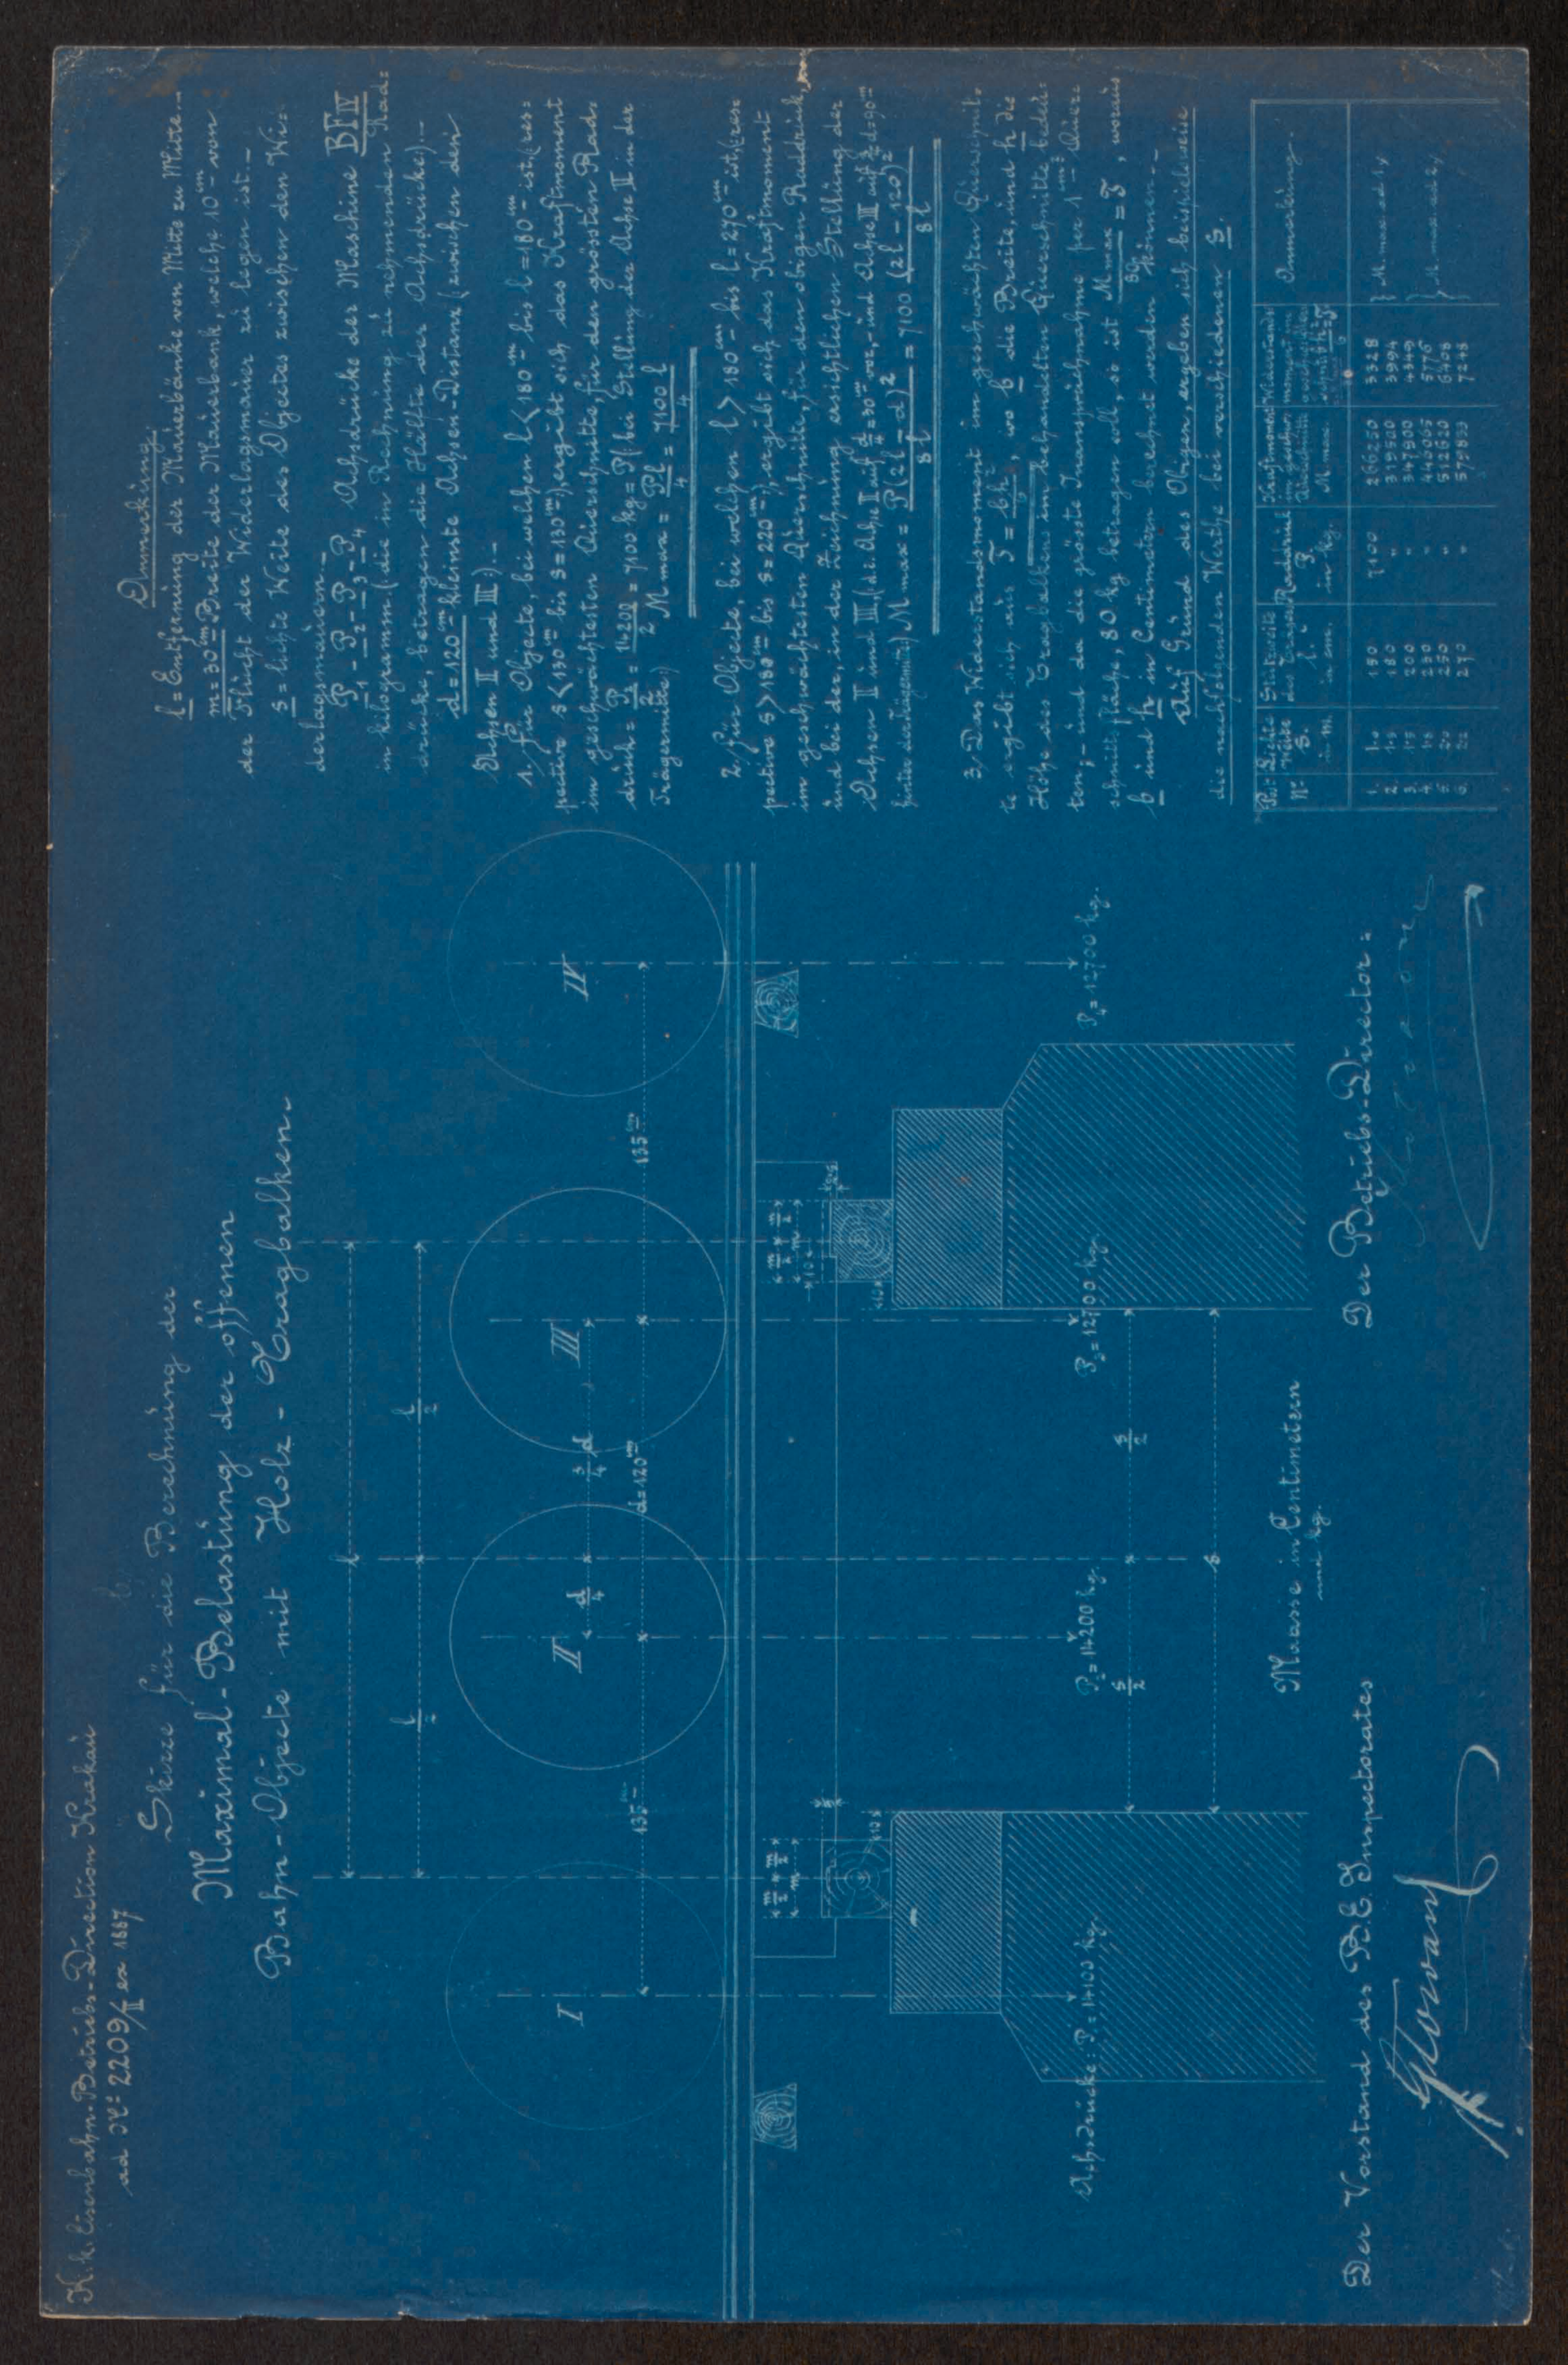 K. k. Eisenbahn-Betriebs-Direction Krakau
ad Nº 2209/II ex 1887
Skizze für die Berechnung der
Maximal-Belastung der offenen
Bahn-Objecte mit Holz-Tragbalken
l
l/2 l/2
I II III IV
d/4 3/4 d
135 cm d=120 cm 135 cm
m/2 m/2
m
10
m/2 m/2
m
10
Achsdrücke: P₁=14100 kg. P₂=14200 kg. P₃=12700 kg. P₄=12700 kg.
s/2 s/2
s
Maasse in Centimetern
und kg.
Der Vorstand des R.E. Inspectorates
Der Betriebs-Director:
Anmerkung.
l = Entfernung der Mauerbänke von Mitte zu Mitte.-
m=30 cm=Breite der Mauerbank, welche 10 cm von
der Flucht der Widerlagsmauer zu legen ist.-
s = lichte Weite des Objectes zwischen den Wi=
derlagsmauern.-
P₁-P₂-P₃-P₄ Achsdrücke der Maschine B IV
in kilogramm (die in Rechnung zu nehmenden Rad=
drücke, betragen die Hälfte der Achsdrücke).-
d=120 cm kleinste Achsen-Distanz (zwischen den
Achsen II und III:)-
1. Für Objecte, bei welchen l<180 cm bis l=180 cm ist, (res=
pective s<130 cm bis s=130 cm), ergibt sich das Kraftmoment
im geschwächtesten Querschnitte, für den grössten Rad=
druck = P₂/2 = 14200/2 = 7100 kg = P (bei Stellung der Achse II in der
Trägermitte:) M max = Pl/4 = 7100 l/4
2. Für Objecte, bei welchen l>180 cm bis l=270 cm ist, (res=
pective s>130 cm bis s=220 cm), ergibt sich das Kraftmoment
im geschwächtesten Querschnitte, für den obigen Raddruck,
und bei der, in der Zeichnung ersichtlichen Stellung der
Achsen II und III, (d.i. Achse II auf d/4=30 cm vor, und Achse III auf 3/4 d=90 cm
hinter der Trägermitte) M max = P(2l-d)²/8l = 7100 (2l-120)²/8l
3. Das Widerstandsmoment im geschwächten Querschnit=
te ergibt sich aus T = bh²/6, wo b die Breite, und h die
Höhe des Tragbalkens im behandelten Querschnitte bedeu=
ten, und da die grösste Inanspruchnahme per 1 cm² Quer=
schnittsfläche, 80 kg betragen soll, so ist M max/80 = T, woraus
b und h in Centimetern berechnet werden können.-
Auf Grund des Obigen, ergeben sich beispielsweise
die nachfolgenden Werthe bei verschiedenen s.
Post Nº Lichte Weite s. in m. Stützweite des Trägers l. in cm. Raddruck P in kg. Kraftmoment im gefährl. Querschnitte M. max. Widerstands= moment Anmerkung.
1. 1.0 150 7100 266250 3328 } M max ad 1/.
2. 1.3 180 " 319500 3994
3. 1.5 200 " 347900 4349 } M max ad 2/.
4. 1.8 230 "
5. 2.0 250 " 512620 6408
6. 2.2 270 " 579833 7248